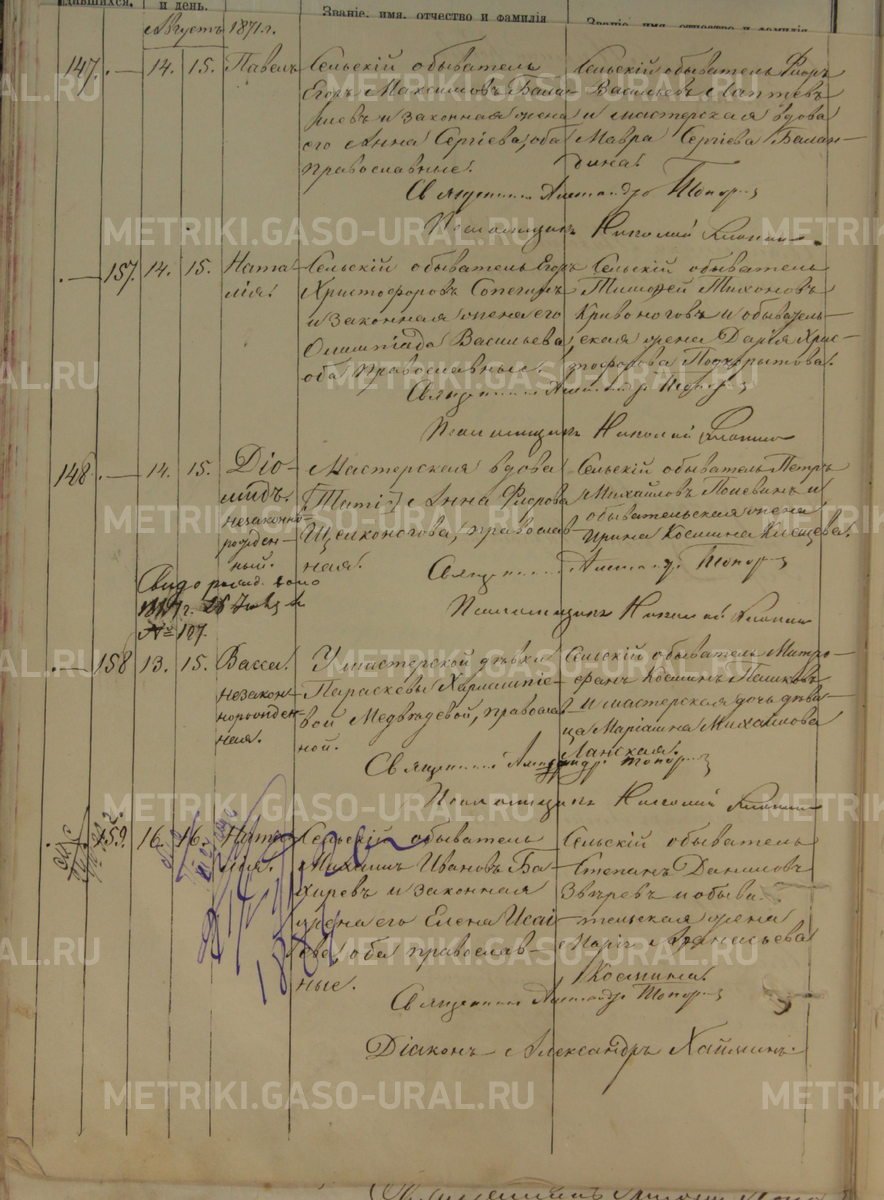 и день.
Званіе, имя, отчество и фамилія
Августъ 1871 г.
147. — 14. 15. Павелъ
Сельскій обыватель
Егоръ Максимовъ
и законная жена
его Анна Сергіева, оба
православные.
Сельскій обыватель Флоръ
Васильевъ Лаптевъ
и мастерская вдова
Мавра Сергіева Балан-
дина.
Священникъ Александръ Топор
Псаломщикъ Николай
— 157. 14. 15. Ната-
лія.
Сельскій обыватель Егоръ
Христофоровъ
и законная жена его
Олимпіада Васильева,
оба православные.
Сельскій обыватель
Тимофей Тихоновъ
Кривоноговъ и обыватель-
ская жена Дарія Хрис-
тофорова
Священникъ Александръ Топор
Псаломщикъ Николай
148 — 14. 15. Діо-
мидъ.
незаконно-
рожден-
ный.
Мастерская вдова
Анна Флорова
Щелконогова, православ-
ная.
Сельскій обыватель Петръ
Михайловъ Полевинъ и
обывательская жена
Ирина Космина Клещева.
Священникъ Александръ Топор
Псаломщикъ Николай
№ 107.
— 158 13. 15. Васса.
незакон-
норожден-
ная.
У мастерской дѣвки
Параскевы Харлампіе-
вой Медвѣдевой, православ-
ной.
Сельскій обыватель Митро-
фанъ Косминъ Пешковъ
и мастерская дочь дѣви-
ца Маріамна Михаилова
Ланская.
Священникъ Александръ Топор
Псаломщикъ Николай
159. 16. 16. Ната-
лія.
Сельскій обыватель
Михаилъ Ивановъ Ба-
хиревъ и законная
жена его Елена Исаі-
ева, оба православ-
ные.
Сельскій обыватель
Степанъ Даниловъ
Звѣревъ и обыва-
тельская жена
Марія Афанасьева
Космина.
Священникъ Александръ Топор
Діаконъ Александръ Хайминъ.
METRIKI.GASO-URAL.RU